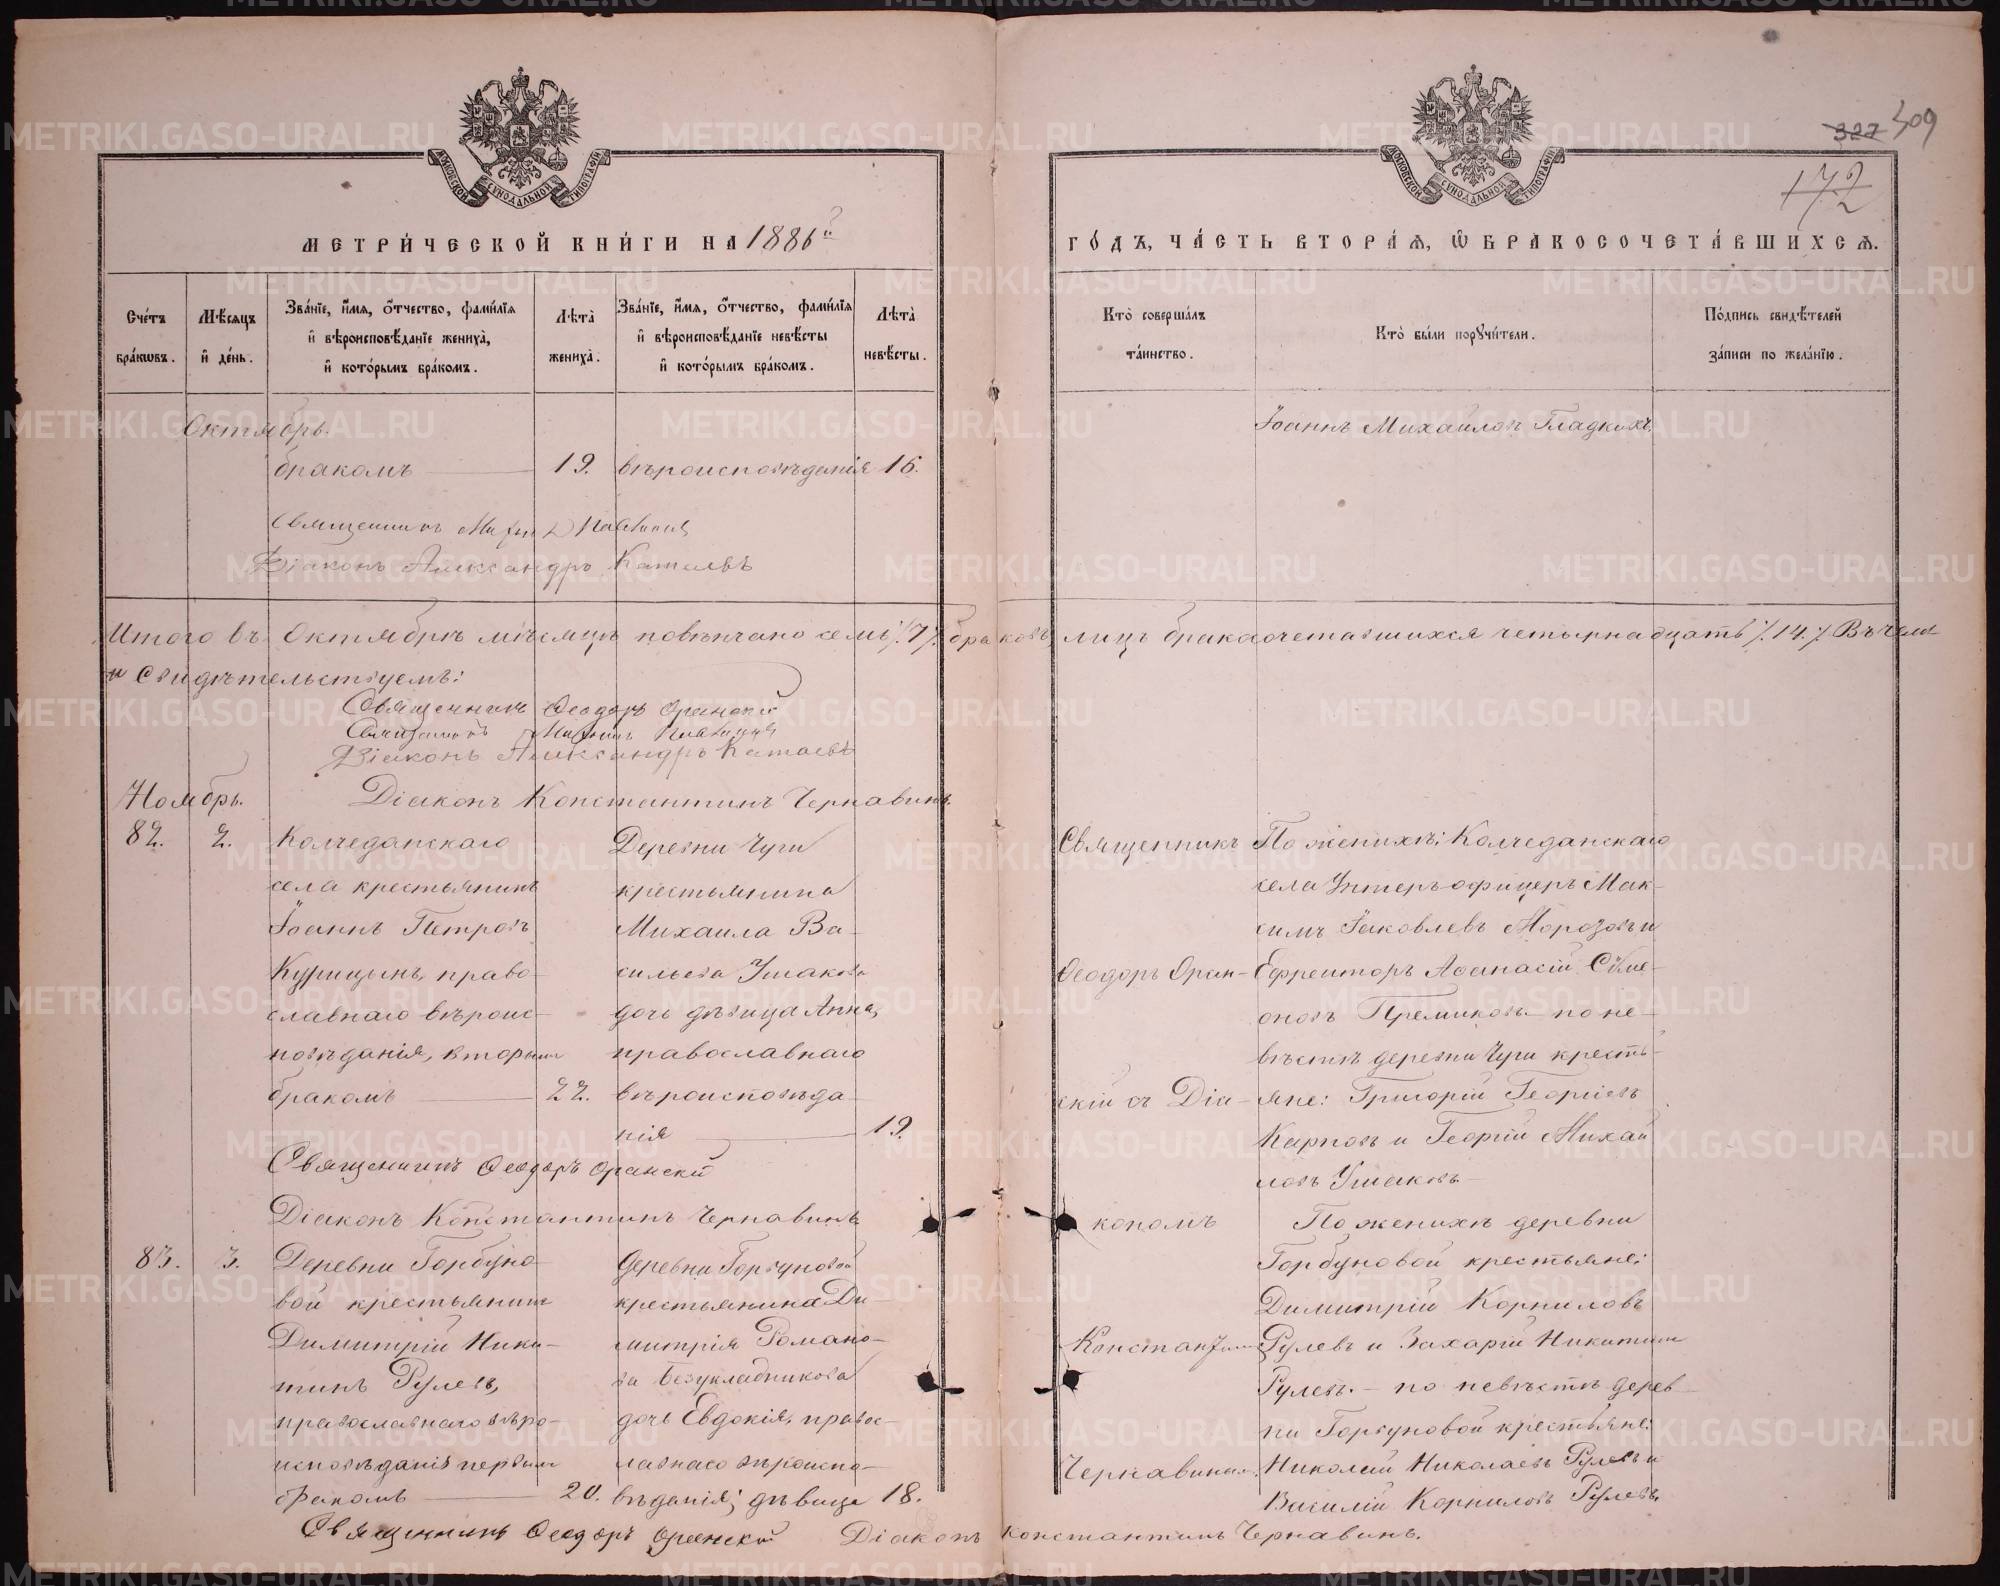 327 309
172
МЕТРИ́ЧЕСКОЙ КНИ́ГИ НА 1886й
ГО́ДЪ, ЧА́СТЬ ВТОРА́Я, Ѽ БРАКОСОЧЕТА́ВШИХСЯ.
Сче́тъ бра́ковъ.
Мѣ́сяцъ и де́нь.
Зва́нїе, и́мя, о́тчество, фами́лїя и вѣроисповѣ́данїе жениха̀, и кото́рымъ бра́комъ.
Лѣта̀ жениха̀.
Зва́нїе, и́мя, о́тчество, фами́лїя и вѣроисповѣ́данїе невѣ́сты и кото́рымъ бра́комъ.
Лѣта̀ невѣ́сты.
Кто̀ соверша́лъ та́инство.
Кто̀ бы́ли порꙋчи́тели.
По́дпись свидѣ́телей за́писи по жела́нїю.
Октябрь.
бракомъ 19. вѣроисповѣданія 16.
Іоаннъ Михайловъ Гладкихъ.
Священникъ
Діаконъ Александръ Катаевъ
Итого въ Октябрѣ мѣсяцѣ повѣнчано семь ./7/. браковъ, лицъ бракосочетавшихся четырнадцать /.14./ Въ чемъ
и свидѣтельствуемъ:
Священникъ Ѳеодоръ Оранскій
Священникъ
Діаконъ Александръ Катаевъ
Діаконъ Константинъ Чернавинъ.
Ноябрь.
82. 2.
Колчеданскаго
села крестьянинъ
Іоаннъ Петровъ
Курицынъ, право-
славнаго вѣроис-
повѣданія, вторымъ
бракомъ 22.
Деревни Чуги
крестьянина
Михаила Ва-
сильева Ушакова
дочь дѣвица Анна,
православнаго
вѣроисповѣда-
нія 19.
Священникъ
Ѳеодоръ Оран-
скій съ Діа-
кономъ
Константиномъ
Чернавинымъ.
По женихѣ: Колчеданскаго
села Унтеръ-офицеръ Мак-
симъ Яковлевъ Морозовъ и
Ефрейторъ Аѳанасій Сѵме-
оновъ Премиковъ — по не-
вѣстѣ деревни Чуги кресть-
яне: Григорій Георгіевъ
Карповъ и Георгій Михай
ловъ Ушаковъ —
Священникъ Ѳеодоръ Оранскій
Діаконъ Константинъ Чернавинъ
83. 3.
Деревни Горбуно-
вой крестьянинъ
Димитрій Ники-
тинъ Рулевъ,
православнаго вѣро-
исповѣданія первымъ
бракомъ 20.
Деревни Горбуновой
крестьянина Ди-
митрія Романо-
ва Безукладникова
дочь Евдокія, правос-
лавнаго вѣроиспо-
вѣданія; дѣвица 18.
По женихѣ деревни
Горбуновой крестьяне:
Димитрій Корниловъ
Рулевъ и Захарій Никитинъ
Рулевъ. — по невѣстѣ дерев-
ни Горбуновой крестьяне:
Николай Николаевъ Рулевъ и
Василій Корниловъ Рулевъ.
Священникъ Ѳеодоръ Оранскій Діаконъ Константинъ Чернавинъ.